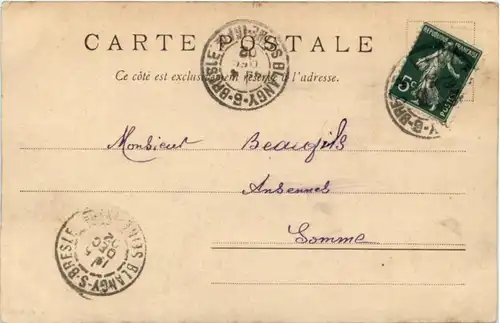 CARTE POSTALE
Ce côté est exclusivement réservé à l'adresse.
RÉPUBLIQUE FRANÇAISE
5c
POSTES
BLANGY-S-BRESLE
Monsieur Beaufils
Ansennes
Somme
BLANGY-S-BRESLE